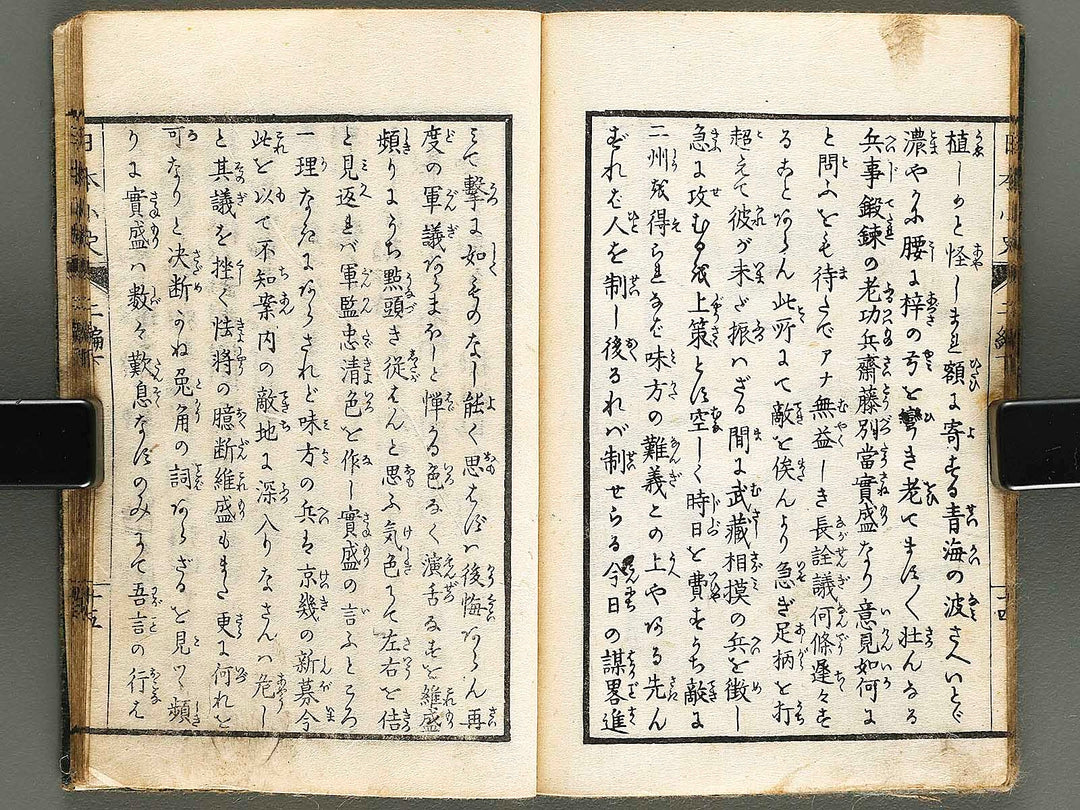 植しかと怪しまれ額に寄する青海の波さへいとど
濃やかに腰に梓の弓を彎き老てますく壮んなる
兵事鍛錬の老功兵齋藤別當實盛なり意見如何に
と問ふをも待たでアナ無益しき長詮議何條遅々す
ることあらん此所にて敵を俟んより急ぎ足柄を打
超えて彼が未だ振はざる間に武藏相摸の兵を徴し
急に攻むるを上策とす空しく時日を費すうち敵に
二州を得られなば味方の難義との上やある先んず
ずれば人を制し後るれば制せらる今日の謀畧進
みて撃に如ものなし能く思はずば後悔あらん再
度の軍議あらまほしと憚る色なく演舌なすを維盛
頻りにうち點頭き従はんと思ふ気色にて左右を佶
と見返れバ軍監忠清色を作し實盛の言ふところ
一理なきにあらされど味方の兵は京幾の新募今
此を以て不知案内の敵地に深入りなさんハ危し
と其議を挫く怯將の臆断維盛もまた更に何れを
可なりと决断かね兎角の詞あらざるを見て頻
りに實盛ハ数々歎息なすのみにて吾言の行は
日本小史
二編下
十四
十五